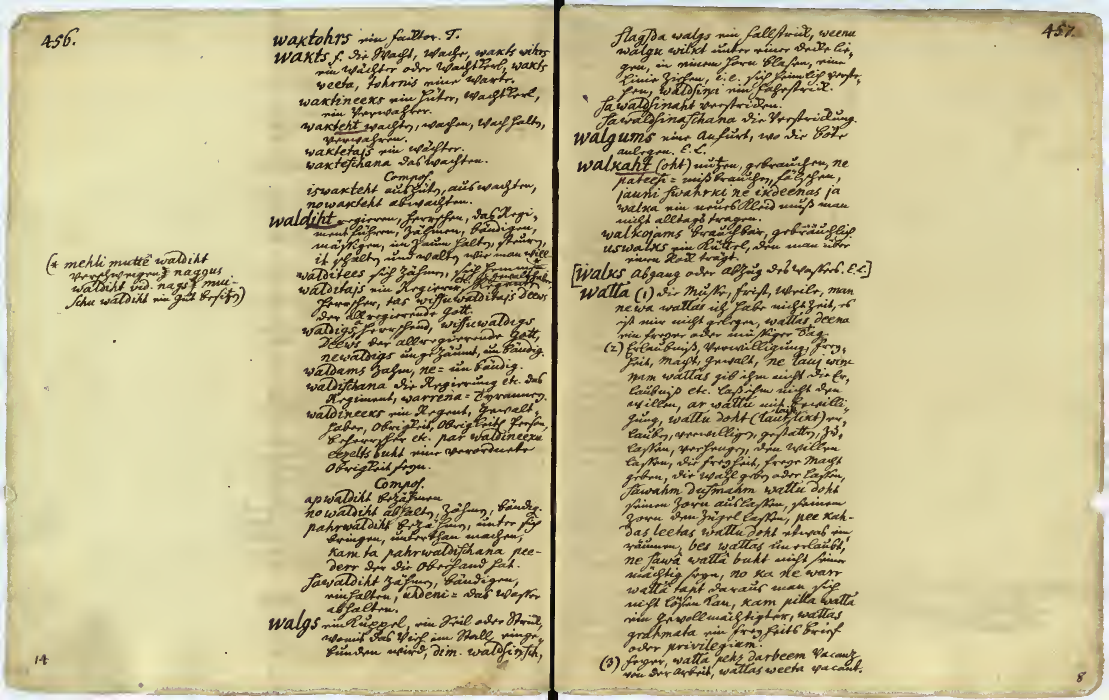 456.
waxtohrs ein Faktor. T.
waxts f. die Wacht, Wache, waxts wihrs
ein Wächter oder Wachtkerl, waxts
weeta, tohrnis eine Warte.
waxtineeks ein Hüter, Wachtkerl,
ein Verwahrer.
waxteht wachten, wachen, Wach halten,
verwahren.
waxtetajs ein Wächter.
waxteschana das Wachten.
Compos.
iswaxteht aushüten, auswachten,
nowaxteht abwachten.
waldiht regieren, herrschen, das Regi-
ment führen, zähmen, bändigen,
mässigen, im Zaum halten, steuren,
it. schalten und walten wie man will
walditees sich zähmen,
walditajs ein Regierer, Regent,
Herrscher, tas wissuwalditajs Deews
der Allregierende Gott.
waldigs herrschend, wissuwaldigs
Deews der allregierende Gott,
newaldigs ungezäumt, unbändig.
waldams zahm, ne= unbändig.
waldischana die Regierung etc. das
Regiment, warrena= Tyranney.
waldineeks ein Regent, Gewalt-
haber, Obrigkeit, Obrigkeits Person,
Beherrscher etc. par waldineeku
eezelts buht eine verordnete
Obrigkeit seyn.
Compos.
apwaldiht bezähmen
nowaldiht abhalten, zähmen, bändig.
pahrwaldiht bezähmen, unter sich
bringen, unterthan machen,
kam ta pahrwaldischana pee-
derr der die Oberhand hat.
sawaldiht zähmen, bändigen,
einhalten, uhdeni= das Wasser
abhalten.
walgs ein Kuppel, ein Seil oder Strick,
womit das Vieh im Stall einge-
bunden wird, dim. waldsinsch,
(* mehli mutte waldiht
verschweigen naggus
waldiht vid. nags mui-
schu waldiht ein Gut besitzen)
14
457.
slagsda walgs ein Fallstrick, weenu
walgu wilkt unter einer Decke lie-
gen, in einem Horn blasen, eine
Linie ziehen, i.e. sich heimlich verste-
hen, waldsini ein Fahrstrick.
sawaldsinaht verstricken.
sawaldsinaschana die Verstrickung.
walgums eine Anfurt, wo die Böte
anlegen. E.L.
walkaht (oht) nutzen, gebrauchen, ne
pateesi= mißbrauchen, fälschen,
jauni swahrki ne ikdeenas ja
walka ein neues Kleid muß man
nicht alltags tragen.
walkojams brauchbar, gebräuchlich
uswalks ein Kittel, den man über
einen Rock trägt.
[walks Abgang oder Abzug des Wassers. E.L.]
walla (1) die Musse, Frist, Weile, man
newa wallas ich habe nicht Zeit, es
ist mir nicht gelegen, wallas deena
ein freyer oder müssiger Tag.
(2) Erlaubniß, Verwilligung, Frey-
heit, Macht, Gewalt, ne laus win-
nam wallas gib ihm nicht die Er-
laubniß etc. laß ihm nicht den
Willen, ar wallu mit Bewilli-
gung, wallu doht (laut, likt) er-
lauben, verwilligen, gestatten, zu-
lassen, verhengen, den Willen
lassen, die Freyheit, freye Macht
geben, die Wahl geben oder lassen,
sawahm dusmahm wallu doht
seinen Zorn auslassen, seinem
Zorn den Zügel lassen, pee kah-
das leetas wallu doht etwas ein-
räumen, bes wallas unerlaubt,
ne sawâ wallâ buht nicht seiner
mächtig seyn, no ka ne warr
wallâ tapt daraus man sich
nicht lösen kan, kam pilla walla
ein Gevollmächtigter, wallas
grahmata ein Freyheits Brief
oder privilegium.
(3) Feyer, walla pehz darbeem Vacanz
von der Arbeit, wallas weeta vacant.
8